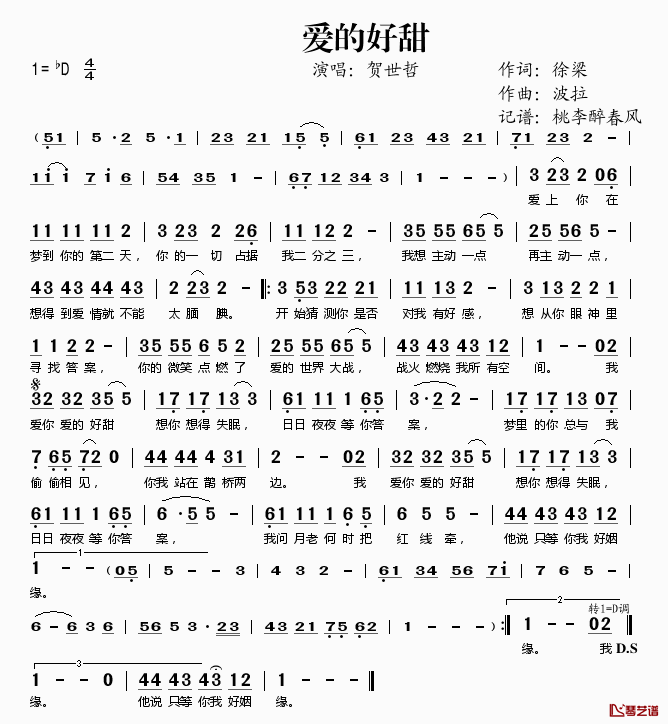 爱的好甜
1=♭D 4/4 演唱：贺世哲 作词：徐梁
作曲：波拉
记谱：桃李醉春风
( 51 | 5 ·2 5 ·1 | 23 21 15 5 | 61 23 43 21 | 71 23 - - |
11 1 7 1 6 | 54 35 1 - | 67 12 34 3 | 1 - - - ) | 3 23 2 06 |
爱上你在
11 11 11 12 | 3 23 2 26 | 11 12 2 - | 35 55 65 5 | 25 56 5 - |
梦到你的第二天， 你的一切占据 我二分之三， 我想主动一点 再主动一点，
43 43 44 43 | 2 23 2 - ‖: 3 53 22 21 | 11 13 2 - | 3 13 22 21 |
想得到爱情就不能 太腼腆。 开始猜测你是否 对我有好感， 想从你眼神里
1 1 2 2 - | 35 55 65 5 | 25 55 65 5 | 43 43 44 43 | 2 - - 02 |
寻找答案， 你的微笑点燃了 爱的世界大战， 战火燃烧我所有空 间。 我
32 32 35 5 | 17 17 13 3 | 61 11 61 65 | 3 ·2 2 - | 17 17 13 07 |
爱你爱的好甜 想你想得失眠， 日日夜夜等你答 案， 梦里的你总与我
7 65 72 0 | 44 44 4 31 | 2 - - 02 | 32 32 35 5 | 17 17 13 3 |
偷偷相见， 你我站在鹊桥两 边。 我 爱你爱的好甜 想你想得失眠，
61 11 1 65 | 6 ·5 5 - | 61 11 1 65 | 6 5 5 - | 44 43 44 43 |
日日夜夜等你答 案， 我问月老何时把 红线牵， 他说只等你我好姻
1
1 - ( 05 | 5 - - 3 | 4 3 2 - | 61 23 45 67 1 | 7 6 5 - |
缘。
6 - 6 3 6 | 56 5 3 · 23 | 43 21 75 62 | 1 - - ) :‖ 1 - - 02 ‖
2 转1=D调
缘。 我 D.S
3
1 - - 0 | 44 43 43 12 | 1 - - - ‖
缘。 他说只等你我好姻 缘。
琴艺谱